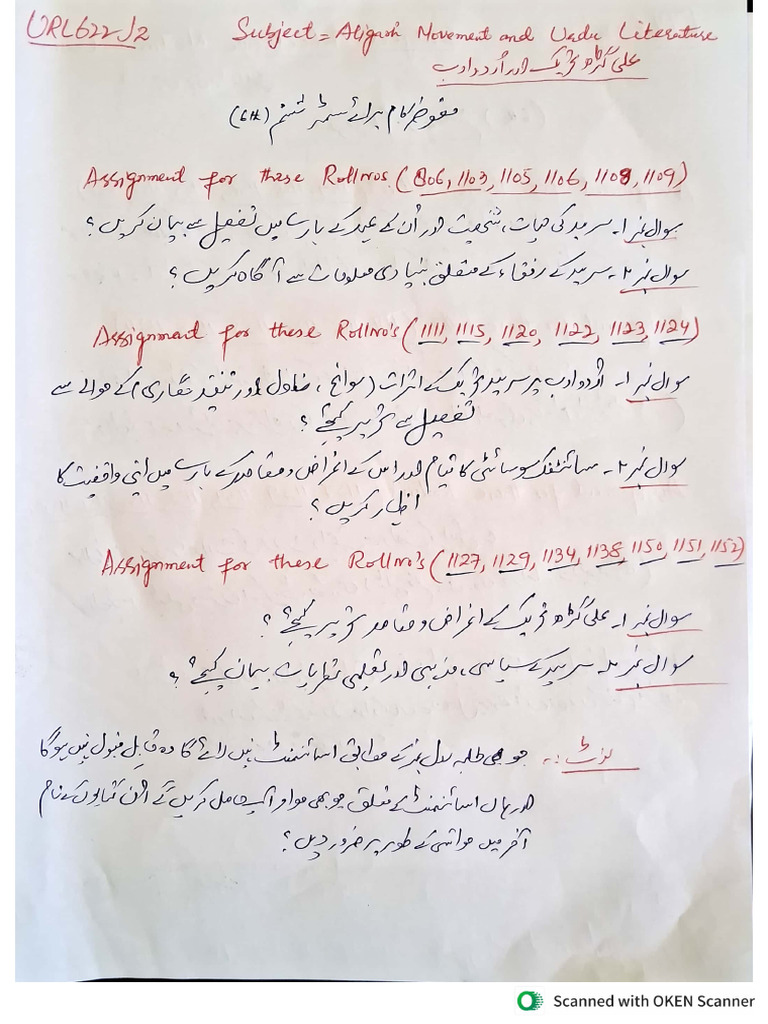 URL622J2 Subject = Aligarh Movement and Urdu Literature
علی گڑھ تحریک اور اُردو ادب
مفوضہ کام برائے سمسٹر ششم (6th)
Assignment for these Rollnos. (806, 1103, 1105, 1106, 1108, 1109)
سوال نمبر ۱۔ سرسید کی حیات، شخصیت اور اُن کے عہد کے بارے میں تفصیل سے بیان کریں؟
سوال نمبر ۲۔ سرسید کے رفقاء کے متعلق بنیادی معلومات سے آگاہ کریں؟
Assignment for these Rollno's (1111, 1115, 1120, 1122, 1123, 1124)
سوال نمبر ۱۔ اُردو ادب پر سرسید تحریک کے اثرات (سوانح، ناول اور تنقید نگاری) کے حوالے سے
تفصیل سے تحریر کیجئے؟
سوال نمبر ۲۔ سائنٹفک سوسائٹی کا قیام اور اس کے اغراض و مقاصد کے بارے میں اپنی واقفیت کا
اظہار کریں؟
Assignment for these Rollno's (1127, 1129, 1134, 1138, 1150, 1151, 1152)
سوال نمبر ۱۔ علی گڑھ تحریک کے اغراض و مقاصد تحریر کیجئے؟
سوال نمبر ۲۔ سرسید کے سیاسی، مذہبی اور تعلیمی نظریات بیان کیجئے؟
نوٹ:۔ جو بھی طلبہ رول نمبر کے مطابق اسائنمنٹ نہیں لائے گا وہ قابلِ قبول نہیں ہوگا
اور ہاں اسائنمنٹ کے متعلق جو بھی مواد آپ حاصل کریں گے اُن کتابوں کے نام
آخر میں حواشی کے طور پر ضرور دیں؟
Scanned with OKEN Scanner